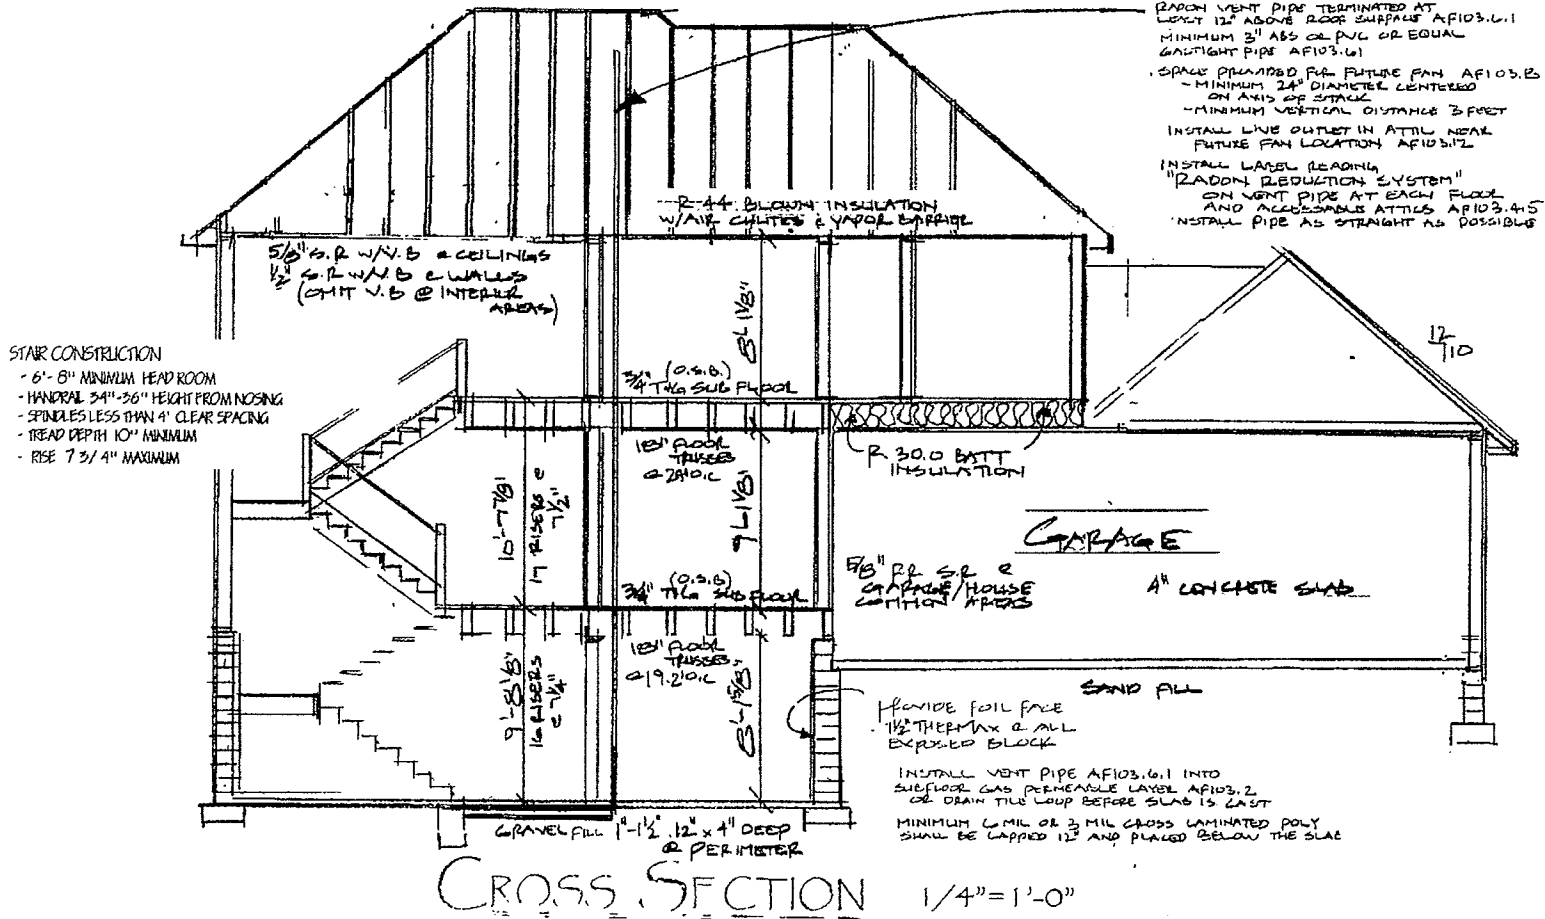 RADON VENT PIPE TERMINATED AT
LEAST 12" ABOVE ROOF SURFACE AF103.6.1
MINIMUM 3" ABS OR PVC OR EQUAL
GASTIGHT PIPE AF103.6.1
SPACE PROVIDED FOR FUTURE FAN AF103.B
- MINIMUM 24" DIAMETER CENTERED
ON AXIS OF STACK
- MINIMUM VERTICAL DISTANCE 3 FEET
INSTALL LIVE OUTLET IN ATTIC NEAR
FUTURE FAN LOCATION AF103.12
INSTALL LABEL READING
"RADON REDUCTION SYSTEM"
ON VENT PIPE AT EACH FLOOR
AND ACCESSABLE ATTICS AF103.4.5
INSTALL PIPE AS STRAIGHT AS POSSIBLE
R-44 BLOWN INSULATION
W/AIR CHUTES & VAPOR BARRIER
5/8" S.R W/V.B @ CEILINGS
1/2" S.R W/V.B @ WALLS
(OMIT V.B @ INTERIOR
AREAS)
8'-1 1/8"
12
10
STAIR CONSTRUCTION
- 6'-8" MINIMUM HEAD ROOM
- HANDRAIL 34"-36" HEIGHT FROM NOSING
- SPINDLES LESS THAN 4' CLEAR SPACING
- TREAD DEPTH 10" MINIMUM
- RISE 7 3/4" MAXIMUM
(O.S.B.)
3/4" T&G SUB FLOOR
18" FLOOR
TRUSSES
@ 24" O.C
R 30.0 BATT
INSULATION
10'-7 7/8"
17 RISERS @
7 1/2"
9'-1 1/8"
GARAGE
(O.S.B)
3/4" T&G SUB FLOOR
5/8" F.R S.R @
GARAGE/HOUSE
COMMON AREAS
4" CONCRETE SLAB
18" FLOOR
TRUSSES
@ 19.2" O.C
9'-8 1/8"
16 RISERS
@ 7 1/4"
8'-1 5/8"
SAND FILL
PROVIDE FOIL FACE
1 1/2" THERMAX @ ALL
EXPOSED BLOCK
INSTALL VENT PIPE AF103.6.1 INTO
SUBFLOOR GAS PERMEABLE LAYER AF103.2
OR DRAIN TILE LOOP BEFORE SLAB IS CAST
MINIMUM 6 MIL OR 3 MIL CROSS LAMINATED POLY
SHALL BE LAPPED 12" AND PLACED BELOW THE SLAB
GRAVEL FILL 1"-1 1/2" .12" x 4" DEEP
@ PERIMETER
CROSS SECTION 1/4"=1'-0"